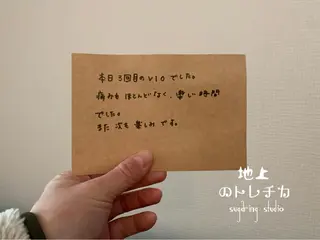 本日3回目のVIOでした。
痛みもほとんどなく、楽しい時間
でした。
また次も楽しみです。
地上
のトレチカ
sugaring studio